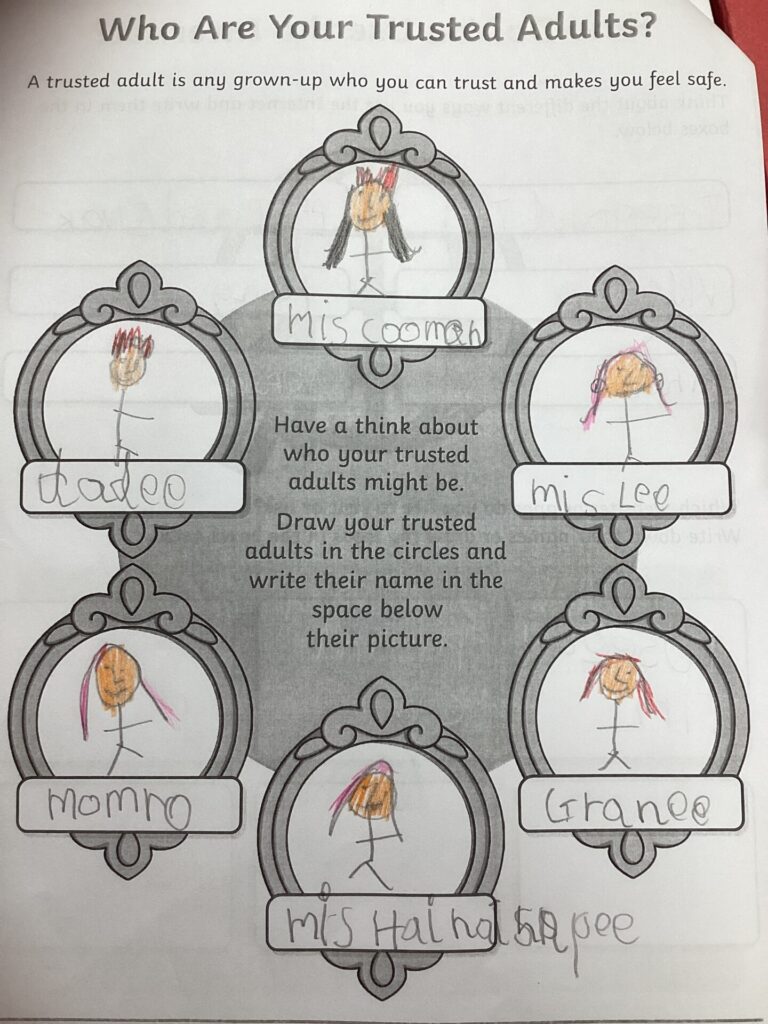 Who Are Your Trusted Adults?
A trusted adult is any grown-up who you can trust and makes you feel safe.
mis cooman
dadee
mis Lee
Have a think about
who your trusted
adults might be.
Draw your trusted
adults in the circles and
write their name in the
space below
their picture.
mommo
Granee
mis